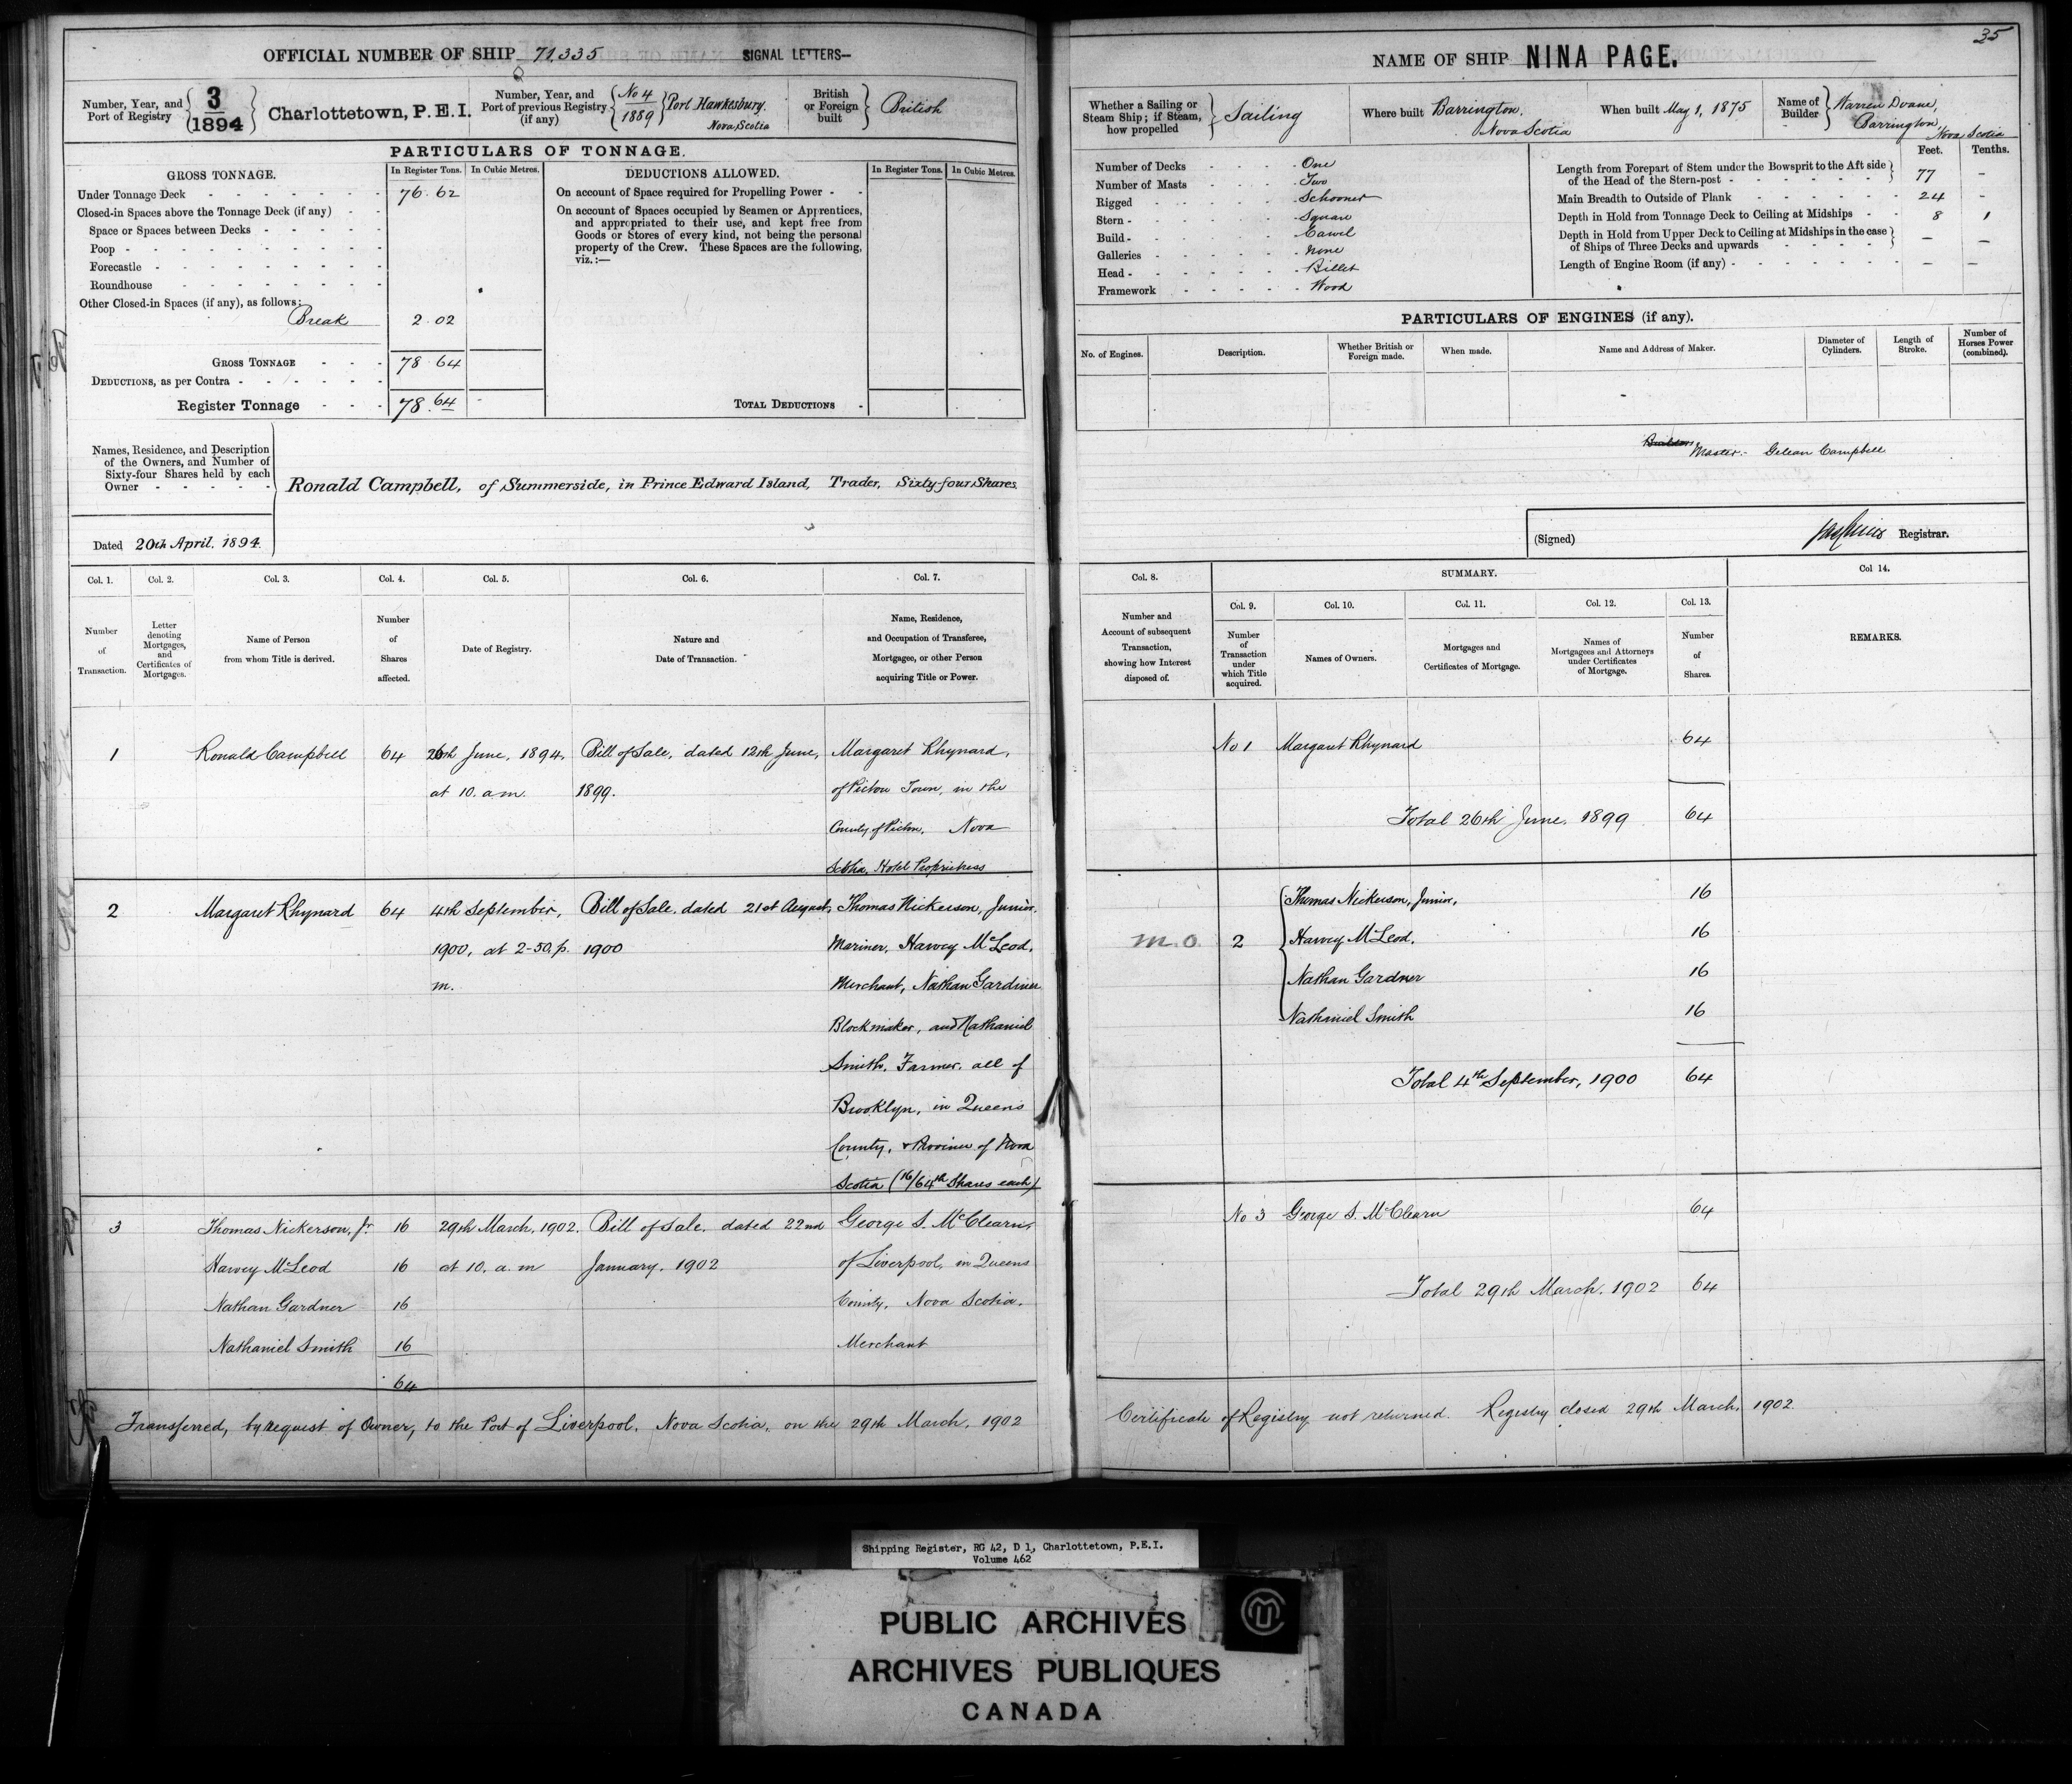 OFFICIAL NUMBER OF SHIP 71,335 SIGNAL LETTERS—
Number, Year, and Port of Registry 3/1894 Charlottetown, P.E.I.
Number, Year, and Port of previous Registry (if any) No 4/1889 Port Hawkesbury, Nova Scotia
British or Foreign built British
PARTICULARS OF TONNAGE.
GROSS TONNAGE. In Register Tons. In Cubic Metres.
Under Tonnage Deck 76.62
Closed-in Spaces above the Tonnage Deck (if any)
Space or Spaces between Decks
Poop
Forecastle
Roundhouse
Other Closed-in Spaces (if any), as follows:
Break 2.02
GROSS TONNAGE 78.64
DEDUCTIONS, as per Contra
Register Tonnage 78.64
DEDUCTIONS ALLOWED. In Register Tons. In Cubic Metres.
On account of Space required for Propelling Power
On account of Spaces occupied by Seamen or Apprentices,
and appropriated to their use, and kept free from
Goods or Stores of every kind, not being the personal
property of the Crew. These Spaces are the following,
viz.:—
TOTAL DEDUCTIONS
Names, Residence, and Description
of the Owners, and Number of
Sixty-four Shares held by each
Owner
Ronald Campbell, of Summerside, in Prince Edward Island, Trader, Sixty-four Shares.
Dated 20th April, 1894.
Col. 1. Col. 2. Col. 3. Col. 4. Col. 5. Col. 6. Col. 7.
Number of Transaction.
Letter denoting Mortgages, and Certificates of Mortgages.
Name of Person from whom Title is derived.
Number of Shares affected.
Date of Registry.
Nature and Date of Transaction.
Name, Residence, and Occupation of Transferee, Mortgagee, or other Person acquiring Title or Power.
1 Ronald Campbell 64 26th June, 1894, Bill of Sale, dated 12th June, Margaret Rhynard,
at 10. a.m. 1899. of Pictou Town, in the
County of Pictou, Nova
Scotia, Hotel Proprietress
2 Margaret Rhynard 64 4th September, Bill of Sale, dated 21st August, Thomas Nickerson, Junior,
1900, at 2-50. p. 1900 Mariner, Harvey McLeod,
m. Merchant, Nathan Gardner
Blockmaker, and Nathaniel
Smith, Farmer, all of
Brooklyn, in Queens
County, & Province of Nova
Scotia (16/64th Shares each)
3 Thomas Nickerson, Jr. 16 29th March, 1902. Bill of Sale, dated 22nd George S. McClearn,
Harvey McLeod 16 at 10. a.m January, 1902 of Liverpool, in Queens
Nathan Gardner 16 County, Nova Scotia,
Nathaniel Smith 16 Merchant
64
Transferred, by request of Owner, to the Port of Liverpool, Nova Scotia, on the 29th March, 1902
35
NAME OF SHIP NINA PAGE.
Whether a Sailing or Steam Ship; if Steam, how propelled Sailing
Where built Barrington, Nova Scotia
When built May 1, 1875
Name of Builder Warren Doane, Barrington, Nova Scotia
Number of Decks One
Number of Masts Two
Rigged Schooner
Stern Square
Build Carvel
Galleries None
Head Billet
Framework Wood
Feet. Tenths.
Length from Forepart of Stem under the Bowsprit to the Aft side
of the Head of the Stern-post 77 –
Main Breadth to Outside of Plank 24 –
Depth in Hold from Tonnage Deck to Ceiling at Midships 8 1
Depth in Hold from Upper Deck to Ceiling at Midships in the case
of Ships of Three Decks and upwards – –
Length of Engine Room (if any) – –
PARTICULARS OF ENGINES (if any).
No. of Engines. Description. Whether British or Foreign made. When made. Name and Address of Maker. Diameter of Cylinders. Length of Stroke. Number of Horses Power (combined).
Master:- Campbell
(Signed) Registrar.
Col. 8. SUMMARY. Col 14.
Col. 9. Col. 10. Col. 11. Col. 12. Col. 13.
Number and Account of subsequent Transaction, showing how Interest disposed of.
Number of Transaction under which Title acquired.
Names of Owners.
Mortgages and Certificates of Mortgage.
Names of Mortgagees and Attorneys under Certificates of Mortgage.
Number of Shares.
REMARKS.
No 1 Margaret Rhynard 64
Total 26th June, 1899 64
m.o. 2 Thomas Nickerson, Junior, 16
Harvey McLeod, 16
Nathan Gardner 16
Nathaniel Smith 16
Total 4th September, 1900 64
No 3 George S. McClearn 64
Total 29th March, 1902 64
Certificate of Registry not returned. Registry closed 29th March, 1902.
Shipping Register, RG 42, D 1, Charlottetown, P.E.I.
Volume 462
PUBLIC ARCHIVES
ARCHIVES PUBLIQUES
CANADA